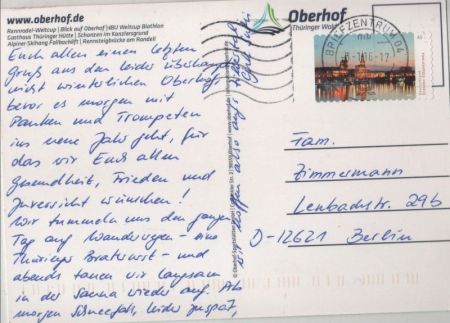 www.oberhof.de
Rennrodel-Weltcup | Blick auf Oberhof | IBU Weltcup Biathlon
Gasthaus Thüringer Hütte | Schanzen im Kanzlersgrund
Alpiner Skihang Fallbachlift | Rennsteigbrücke am Rondell
Euch allen einen letzten
Gruß aus dem leider überhaupt
nicht winterlichen Oberhof
bevor es morgen mit
Pauken und Trompeten
ins neue Jahr geht, für
das wir Euch allen
Gesundheit, Frieden und
Zuversicht wünschen!
Wir tummeln uns den ganzen
Tag auf Wanderwegen - eine
Thüringer Bratwurst - und
abends tauen wir langsam
in der Sauna wieder auf. Ab
morgen Schneefall, leider zu spät,
wir hoffen also auf
Oberhof
Thüringer Wald
BRIEFZENTRUM 04
Fam.
Zimmermann
Lenbachstr. 29b
D-12621 Berlin